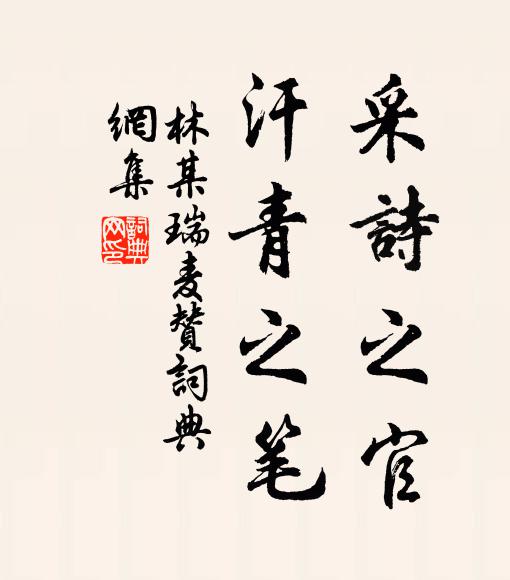 采詩之官
汗青之笔
林某瑞麦赞詞典
網集
詞典
网印